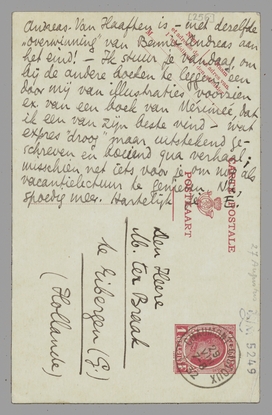 Andreas. Van Haaften is – met derzelfde
"overwinning" van Bennie Andreas aan
het eind! – Ik stuur je vandaag, om
bij de andere boeken te leggen, een
door mij van illustraties voorzien
ex. van een boek van Mérimée, dat
ik een van zijn beste vind – wat
expres "droog" maar uitstekend ge-
schreven en boeiend qua verhaal;
misschien net iets voor je om nog als
vacantielectuur te
spoedig meer. Hartelijk
CARTE POSTALE
POSTKAART
Den Heere
M. ter Braak
te Eibergen (G.)
(Hollande)
27 Augustus
5249